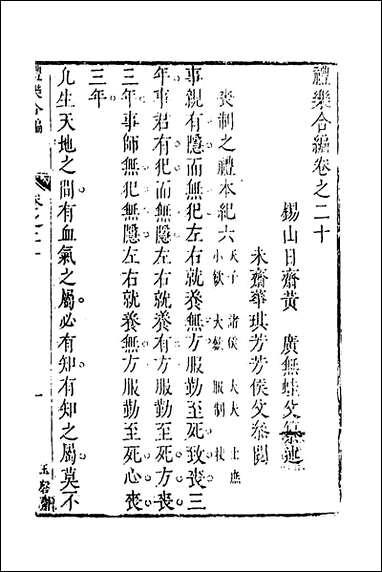 禮樂合編卷之二十
錫山日齋黃　廣無蛙父纂述
未齋華琪芳芳侯父叅閱
喪制之禮本紀六　天子　諸侯　大夫　士庶　小斂　大斂　服制
事親有隱而無犯左右就養無方服勤至死致喪三
年事君有犯而無隱左右就養有方服勤至死方喪
三年事師無犯無隱左右就養無方服勤至死心喪
三年
凡生天地之間有血氣之屬必有知有知之屬莫不
禮樂合編
卷之二十
一
玉磬齋